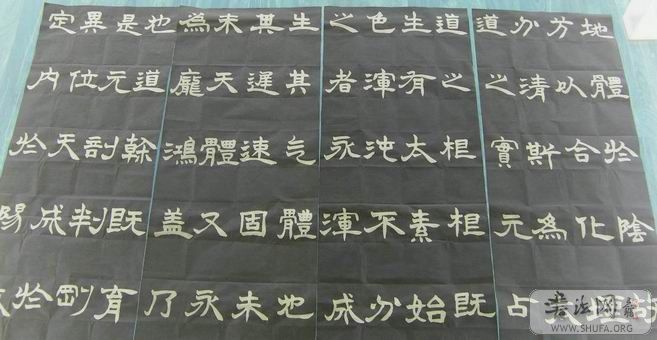 地體於陰
方以合化
分清斯為
道之實元占
道之根根既
生有太素始
色渾沌不分
之者永渾成
生其氣體地
其遲速固未
未天體又永
為龐鴻蓋乃
也道幹既育
是元剖判剛
異位天成於
定内於陽
书法网
WWW.SHUFA.ORG